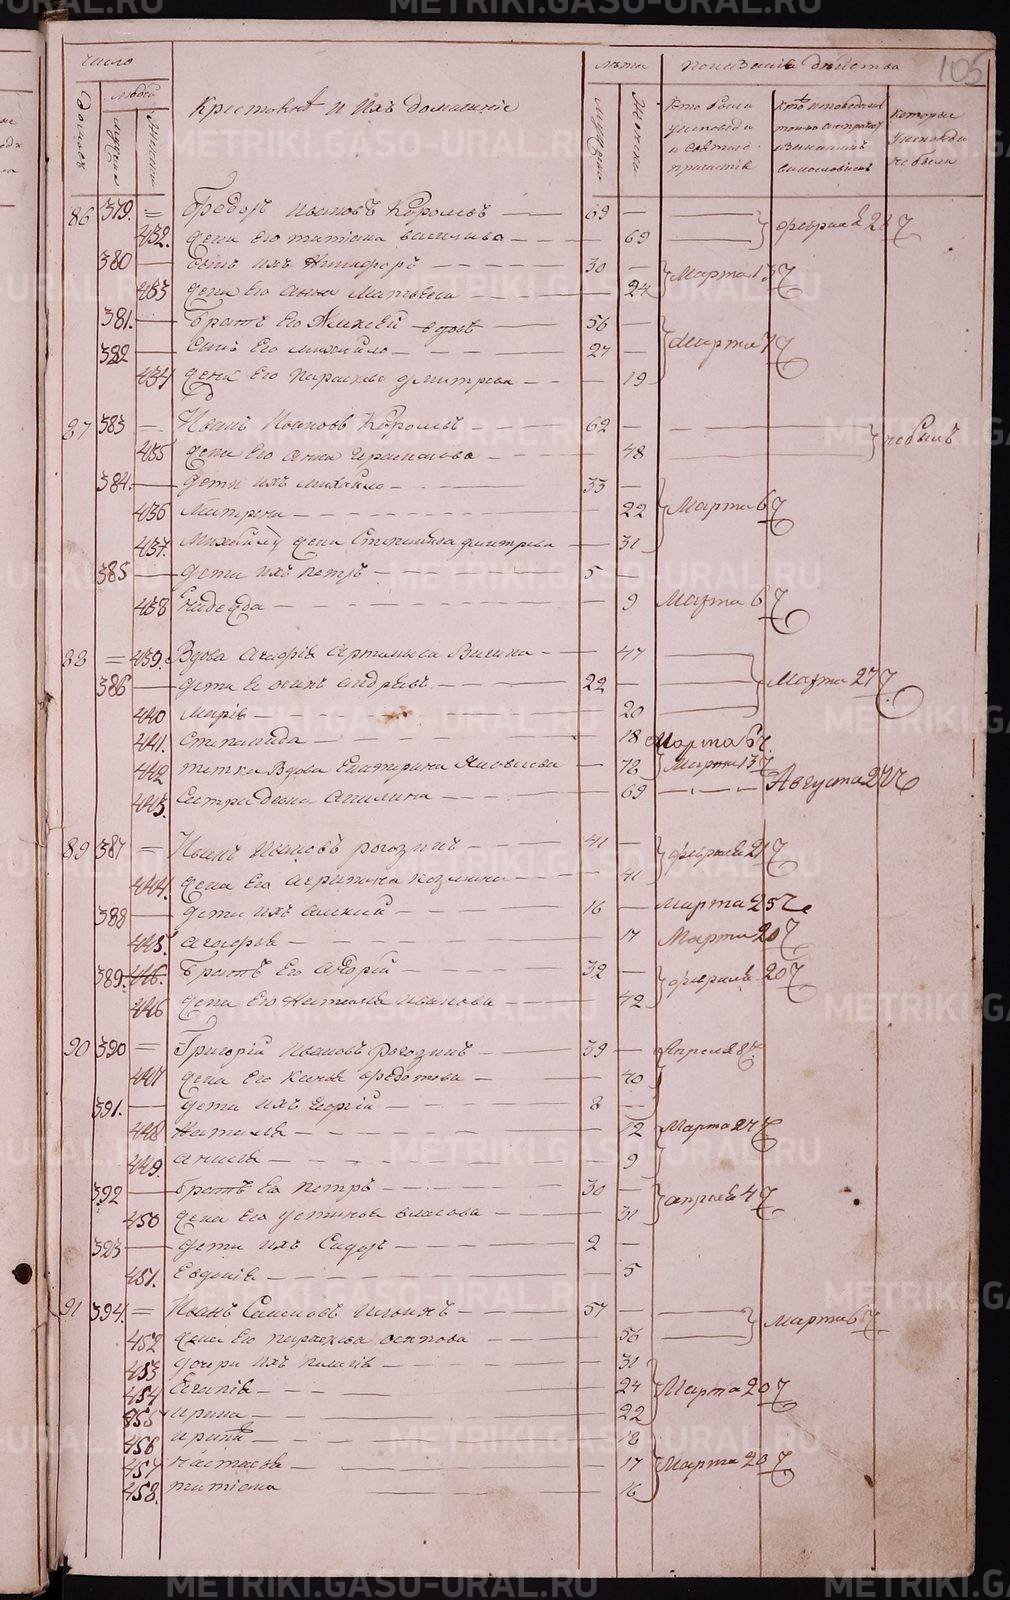 105
число
лѣта
показаніе дѣйства
домовъ
людей
мужска
женска
Крестьянѣ и ихъ домашніе
мужска
женска
кто были
у исповеди
и святаго
причастія
которые
у исповеди
не были
86 379. = Ѳедоръ Ивановъ Королевъ — 69 —
432. жена Его татіана василиева — 69 февраля 28 Ч
380 — сынъ ихъ Никифоръ — 30 —
433 жена Его Анна Матвеева — 24 Марта 13 Ч
381. — братъ Его Алексей вдовъ — 56 —
382 — сынъ Его михайло — 27 — Марта 7 Ч
434 жена Его параскева дмитрева — 19
87 383 = Иванъ Ивановъ Королевъ — 62 —
435 жена Его Анна Герасимова — 48 небылъ
384. — дети ихъ михайло — 33 —
436 Матрена — 22 Марта 6 Ч
437. Михайлы жена Степанида дмитрева — 31
385 — дети ихъ петръ — 5 —
438 надежда — 9 Марта 6 Ч
88 = 439. Вдова Агафія — 47
386 — дети ее осипъ андреевъ — 22 — Марта 27 Ч
440 марія — 20
441. степанида — 18 Марта 6 Ч.
442 тетка Вдова Екатерина Яковлева — 72 Марта 13 Ч
443. Сестра акилина — 69 Августа 27 Ч
89 387 = Иванъ Ивановъ рогозинъ — 41 —
444. жена Его агрипина козмина — 41 февраля 21 Ч
388 — дети ихъ алексей — 16 — Марта 25 Ч
445. агафія — 17 Марта 20 Ч
389. 446. братъ Его андрей — 32 —
446 жена Его Наталья иванова — 42 февраля 20 Ч
90 390 = Григорій Ивановъ Рогозинъ — 39 — Апреля 8 Ч.
447 жена Его ѳедотова — 40
391. — дети ихъ Георгій — 8 —
448 Наталья — 12 Марта 27 Ч
449. анисья — 9
392 — братъ Ео петръ — 30 —
450 жена Его устинья власова — 31 апреля 4 Ч
393 — дети ихъ Сидоръ — 2 —
451. Евдокія — 5
91 394. = Иванъ Семеновъ Ильинъ — 57 —
452 жена Его параскева осипова — 56 Марта 6 Ч
453 дочери ихъ пелагія — 31
454 — 24 Марта 20 Ч
455 ирина — 22
456 ирина — 18
457 настасья — 17 Марта 20 Ч
458. татіана 16
METRIKI.GASO-URAL.RU